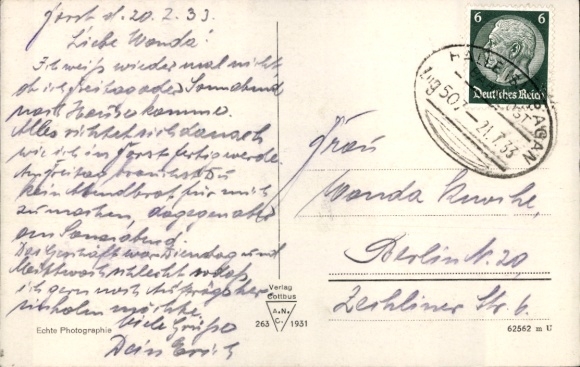 Forst d. 20.7.33
Liebe Wanda!
Ich weiss wieder mal nicht
ob ich Freitag oder Sonnabend
nach Hause komme.
Alles richtet sich danach
wie ich in Forst fertig werde.
Am Freitag brauchst Du
kein Abendbrot für mich
zu machen, dagegen aber
am Sonnabend.
Das Geschäft war Dienstag und
Mittwoch schlecht sodass
ich gern noch Aufträge her
einholen möchte.
Viele Grüße
Dein Erich
Echte Photographie
Verlag
Cottbus
A.N.
C.
263 1931
62562 m U
6 6
Deutsches Reich
HALLE SAGAN
Zug 503
21.7.33
Frau
Wanda
Berlin N. 20
Zechliner Str. 6.